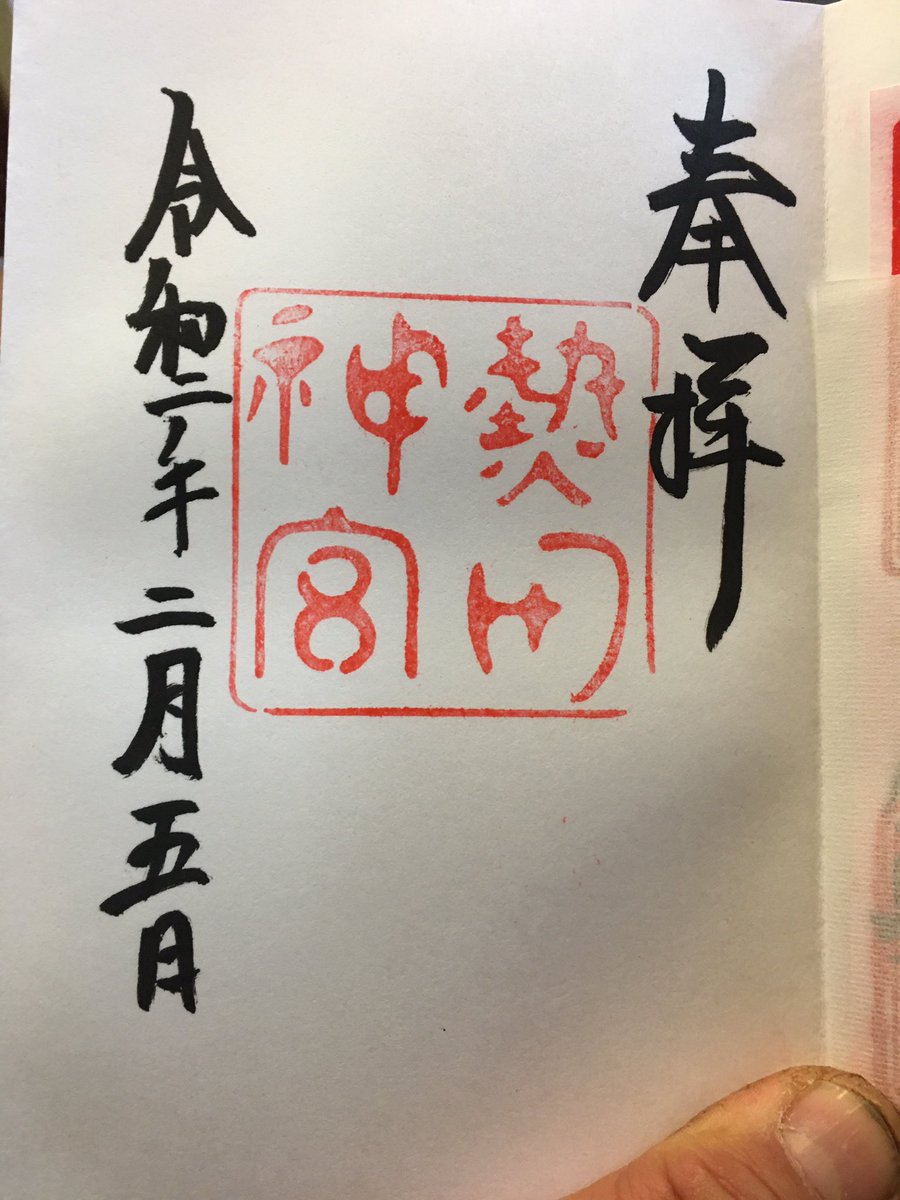 奉拝
熱田
神宮
令和二年二月五日